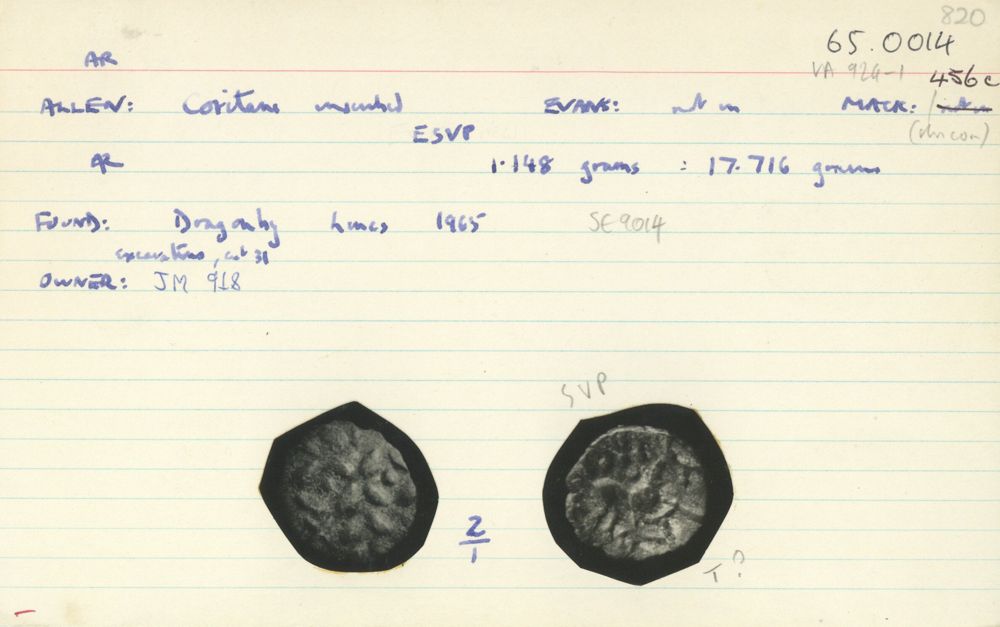 820
65.0014
AR
VA 924-1 456c
ALLEN: Coritani inscribed EVANS: not in MACK: not in
ESVP
AR 1.148 grams : 17.716 grains
FOUND: Dragonby Lincs 1965 SE9014
excavations, cat 31
OWNER: JM 918
SVP
2
1
T?